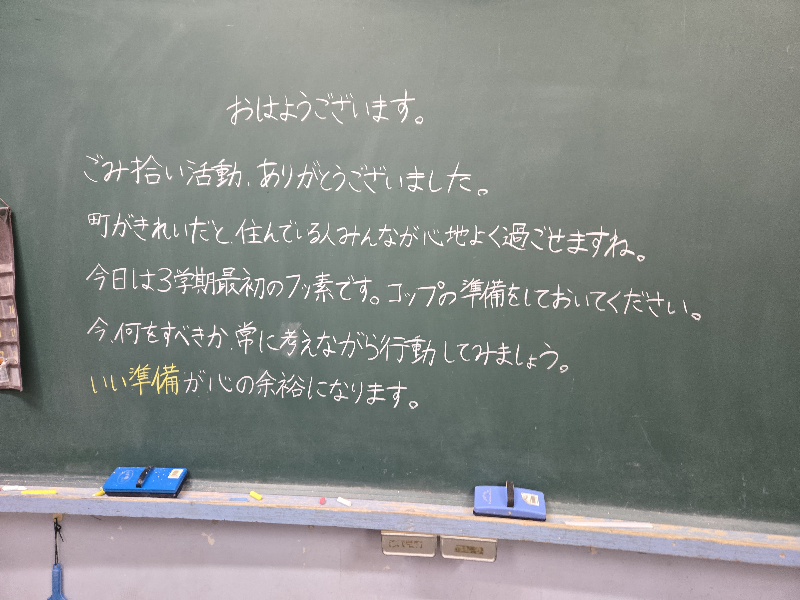 おはようございます。
ごみ拾い活動、ありがとうございました。
町がきれいだと、住んでいる人みんなが心地よく過ごせますね。
今日は3学期最初のフッ素です。コップの準備をしておいてください。
今、何をすべきか、常に考えながら行動してみましょう。
いい準備が心の余裕になります。